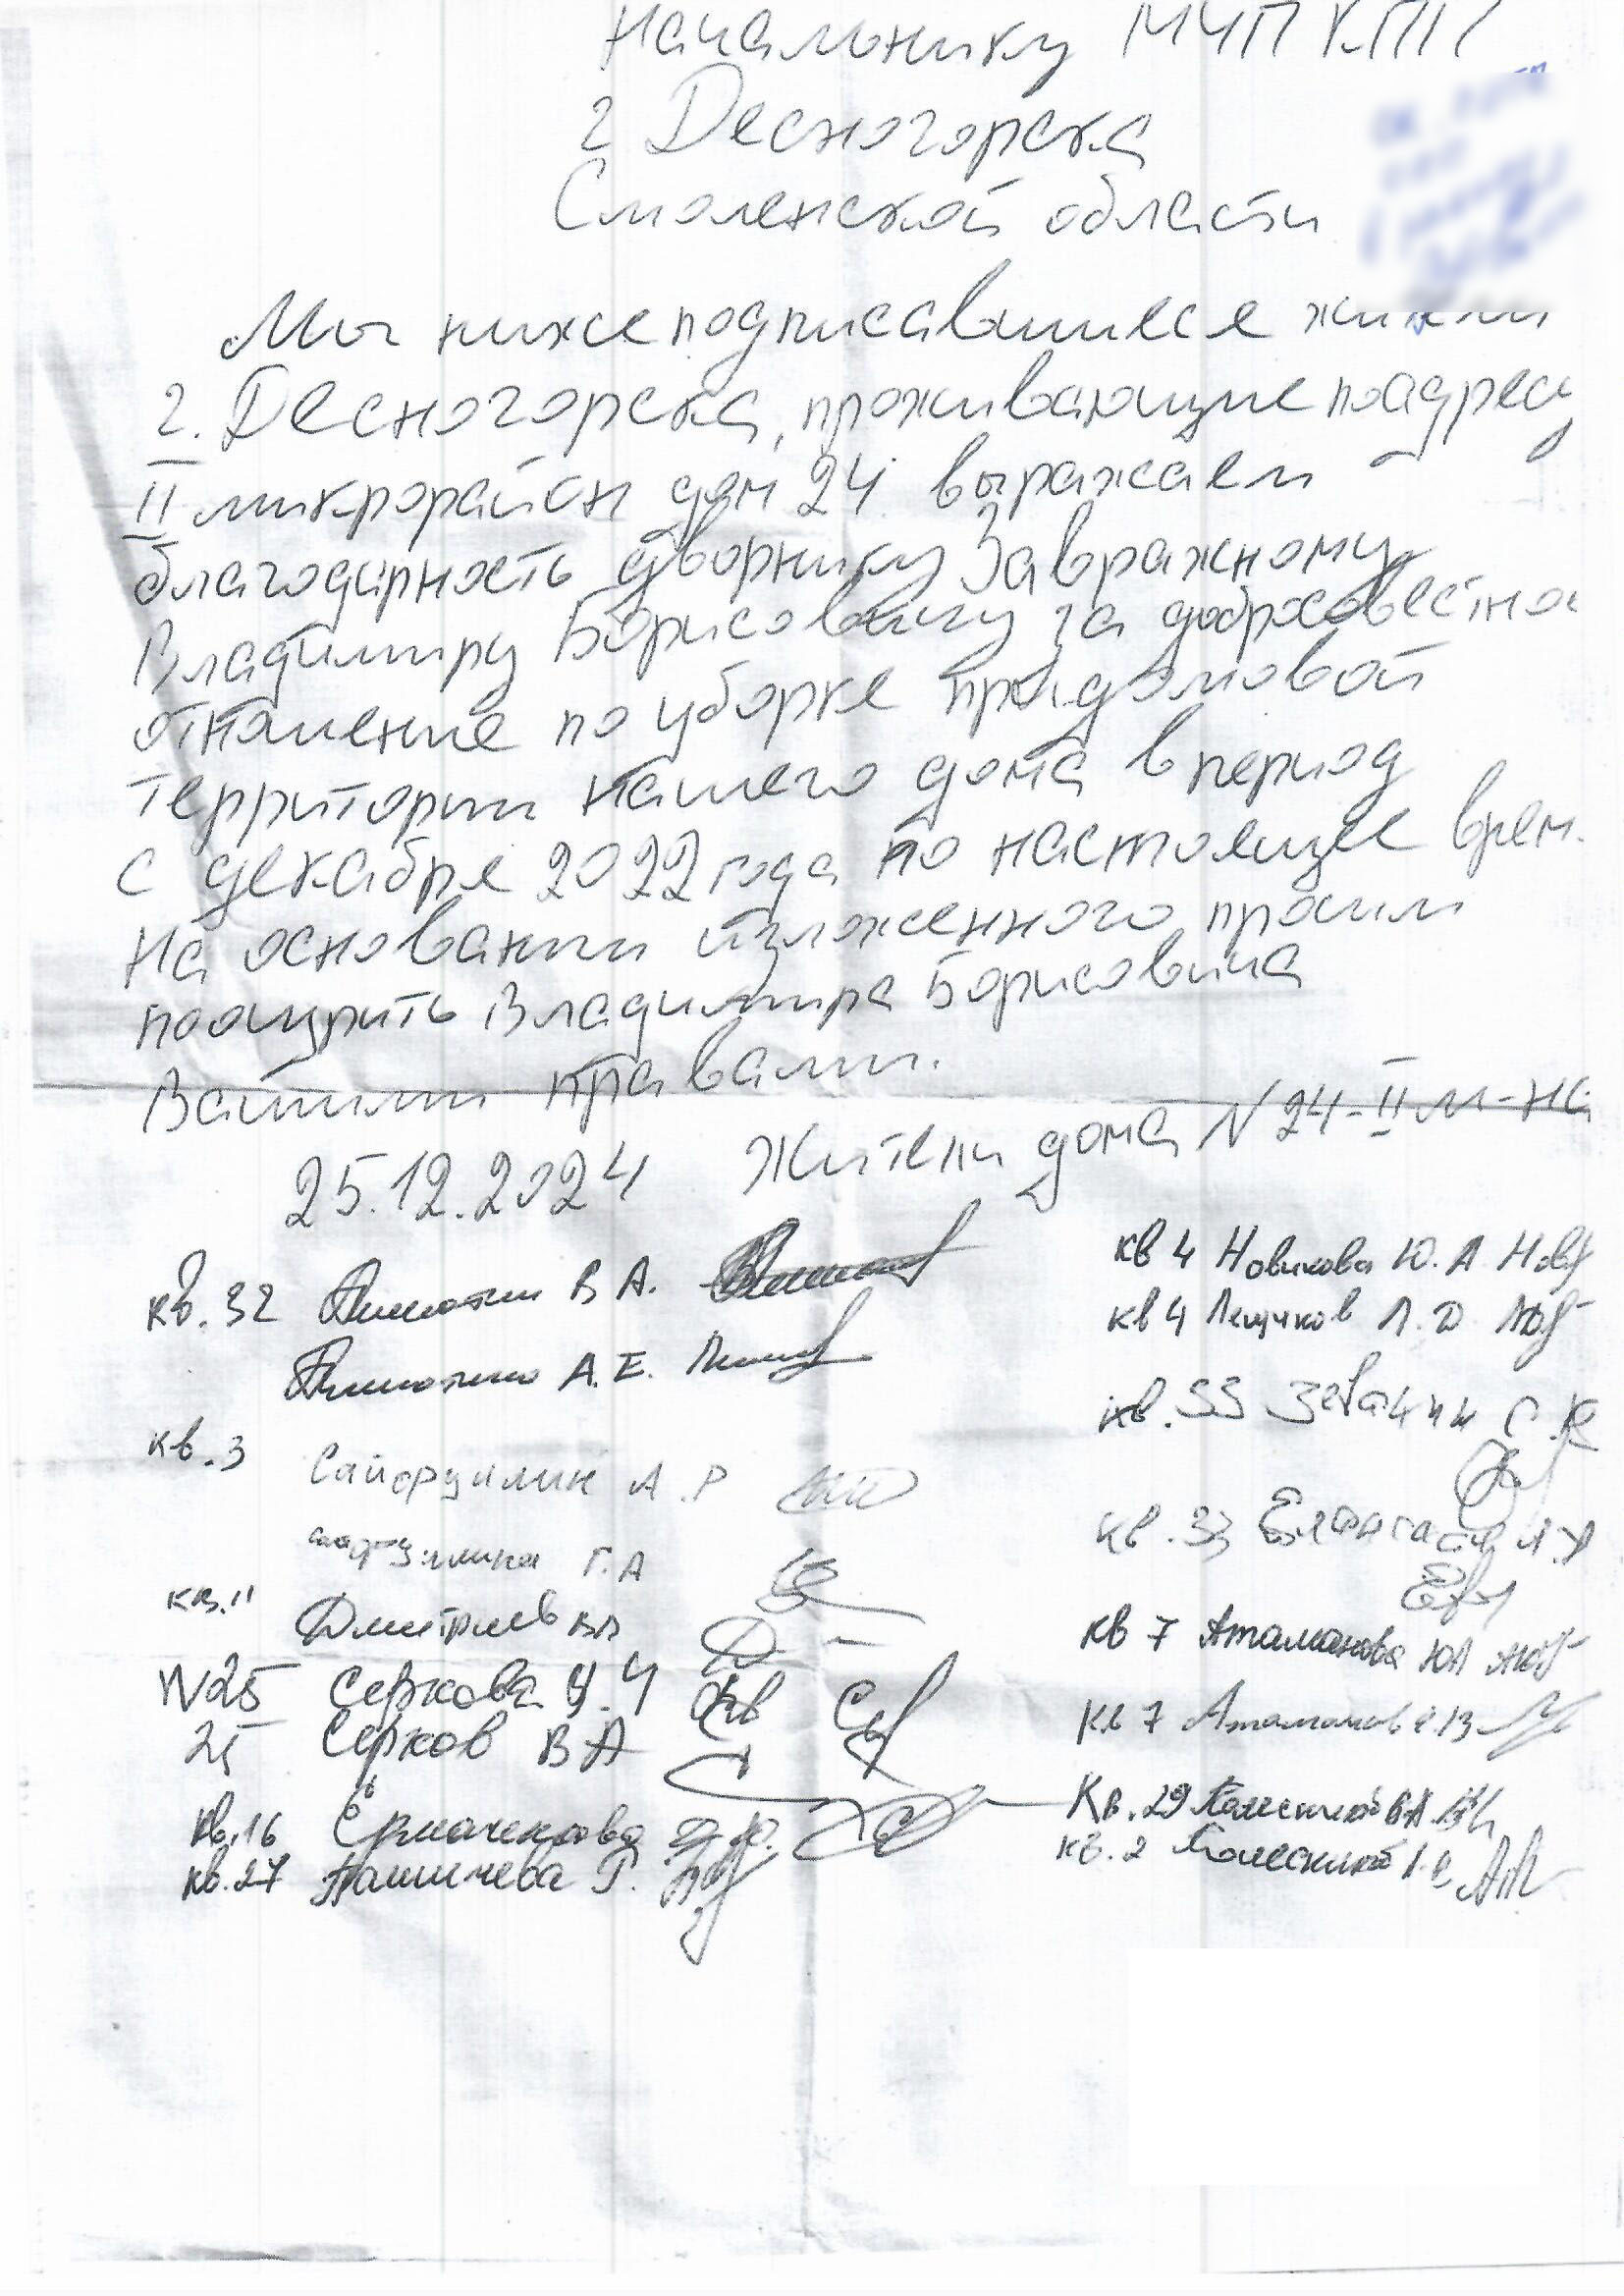 Начальнику МЧП КПП
г Десногорска
Смоленской области
Мы нижеподписавшиеся жители
г. Десногорска, проживающие по адресу
II микрорайон дом 24 выражаем
благодарность дворнику Завражному
Владимиру Борисовичу за добросовестное
отношение по уборке придомовой
территории нашего дома в период
с декабря 2022 года по настоящее врем.
На основании изложенного просим
поощрить Владимира Борисовича
Вашими правами.
25.12.2024 Жители дома N 24-II м-на
кв. 32 В А.
А.Е.
кв. 3 Сайфуллин А.Р
Г.А
кв. 11 Дмитриев
N25 Серкова
25 Серков В А
кв. 16 Ермаченкова
кв. 27 Г.
кв 4 Новикова Ю. А.
кв 4 Лещиков Л. D
кв. 33
кв. 33 Л.
кв 7 Атаманова ЮА
Кв 7 Атаманов
Кв. 29
кв. 2